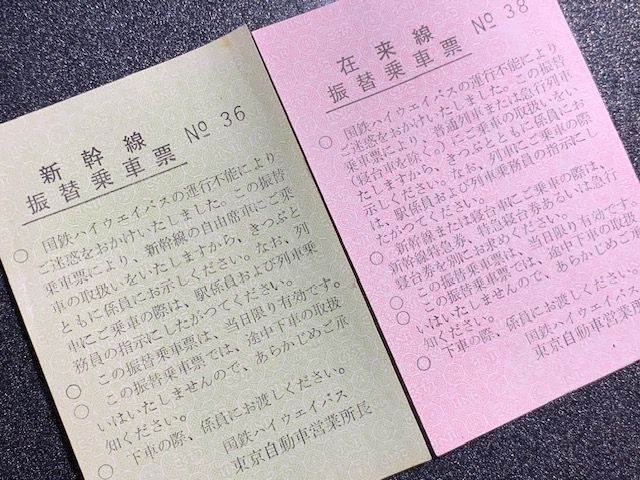 新幹線
振替乗車票
№ 36
○ 国鉄ハイウエイバスの運行不能により
ご迷惑をおかけいたしました。この振替
乗車票により、新幹線の自由席車にご乗
車の取扱いをいたしますから、きつぷと
ともに係員にお示しください。なお、列
車にご乗車の際は、駅係員および列車乗
務員の指示にしたがつてください。
○ この振替乗車票は、当日限り有効です。
○ この振替乗車票では、途中下車の取扱
いはいたしませんので、あらかじめご承
知ください。
○ 下車の際、係員にお渡しください。
国鉄ハイウエイバス
東京自動車営業所長
在来線
振替乗車票
№ 38
○ 国鉄ハイウエイバスの運行不能により
ご迷惑をおかけいたしました。この振替
乗車票により、普通列車または急行列車
(寝台車を除く。)にご乗車の取扱いをい
たしますから、きつぷとともに係員にお
示しください。なお、列車にご乗車の際
は、駅係員および列車乗務員の指示にし
たがつてください。
○ 新幹線または寝台車にご乗車の際は、
新幹線特急券、特急寝台券あるいは急行
寝台券を別にお求めください。
○ この振替乗車票は、当日限り有効です。
○ この振替乗車票では、途中下車の取扱
いはいたしませんので、あらかじめご承
知ください。
○ 下車の際、係員にお渡しください。
国鉄ハイウエイバス
東京自動車営業所